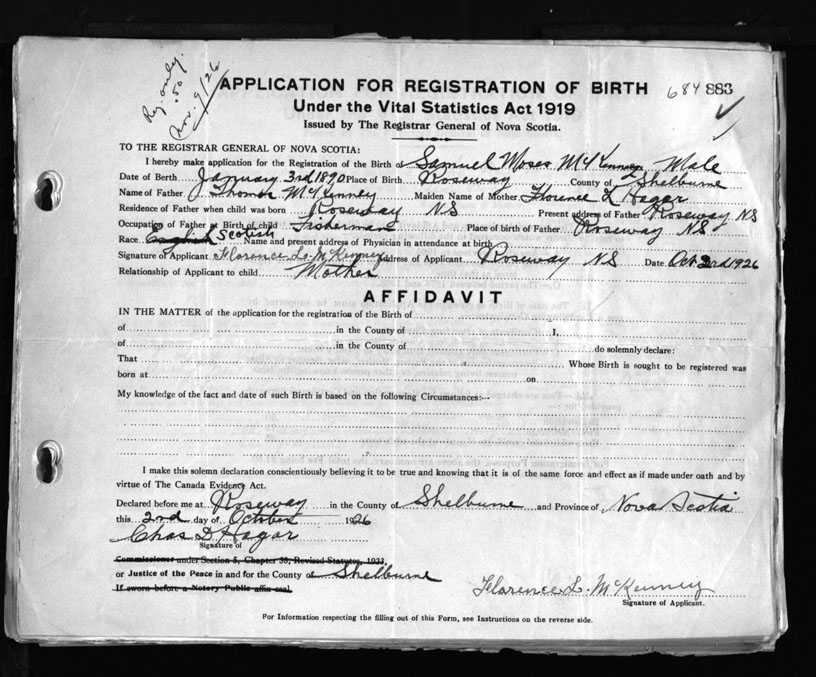 Reg. only.
.50
Nov. 9/26
APPLICATION FOR REGISTRATION OF BIRTH 684 883
Under the Vital Statistics Act 1919
Issued by The Registrar General of Nova Scotia.
TO THE REGISTRAR GENERAL OF NOVA SCOTIA:
I hereby make application for the Registration of the Birth of Samuel Moses McKenney Male
Date of Birth January 3rd 1890 Place of Birth Roseway County of Shelburne
Name of Father J. Thomas McKenney Maiden Name of Mother Florence L Hagar
Residence of Father when child was born Roseway NS Present address of Father Roseway NS
Occupation of Father at Birth of child Fisherman Place of birth of Father Roseway NS
Race English Scotish Name and present address of Physician in attendance at birth
Signature of Applicant Florence L. McKenney Address of Applicant Roseway NS Date Oct 2nd 1926
Relationship of Applicant to child Mother
AFFIDAVIT
IN THE MATTER of the application for the registration of the Birth of
of in the County of I,
of in the County of do solemnly declare:
That Whose Birth is sought to be registered was
born at on
My knowledge of the fact and date of such Birth is based on the following Circumstances:--
I make this solemn declaration conscientiously believing it to be true and knowing that it is of the same force and effect as if made under oath and by
virtue of The Canada Evidence Act.
Declared before me at Roseway in the County of Shelburne and Province of Nova Scotia
this 2nd day of October 1926
Chas D Hagar
Signature of
Commissioner under Section 5, Chapter 38, Revised Statutes, 1923
or Justice of the Peace in and for the County of Shelburne
If sworn before a Notary Public affix seal
Florence L. McKenney
Signature of Applicant.
For Information respecting the filling out of this Form, see Instructions on the reverse side.